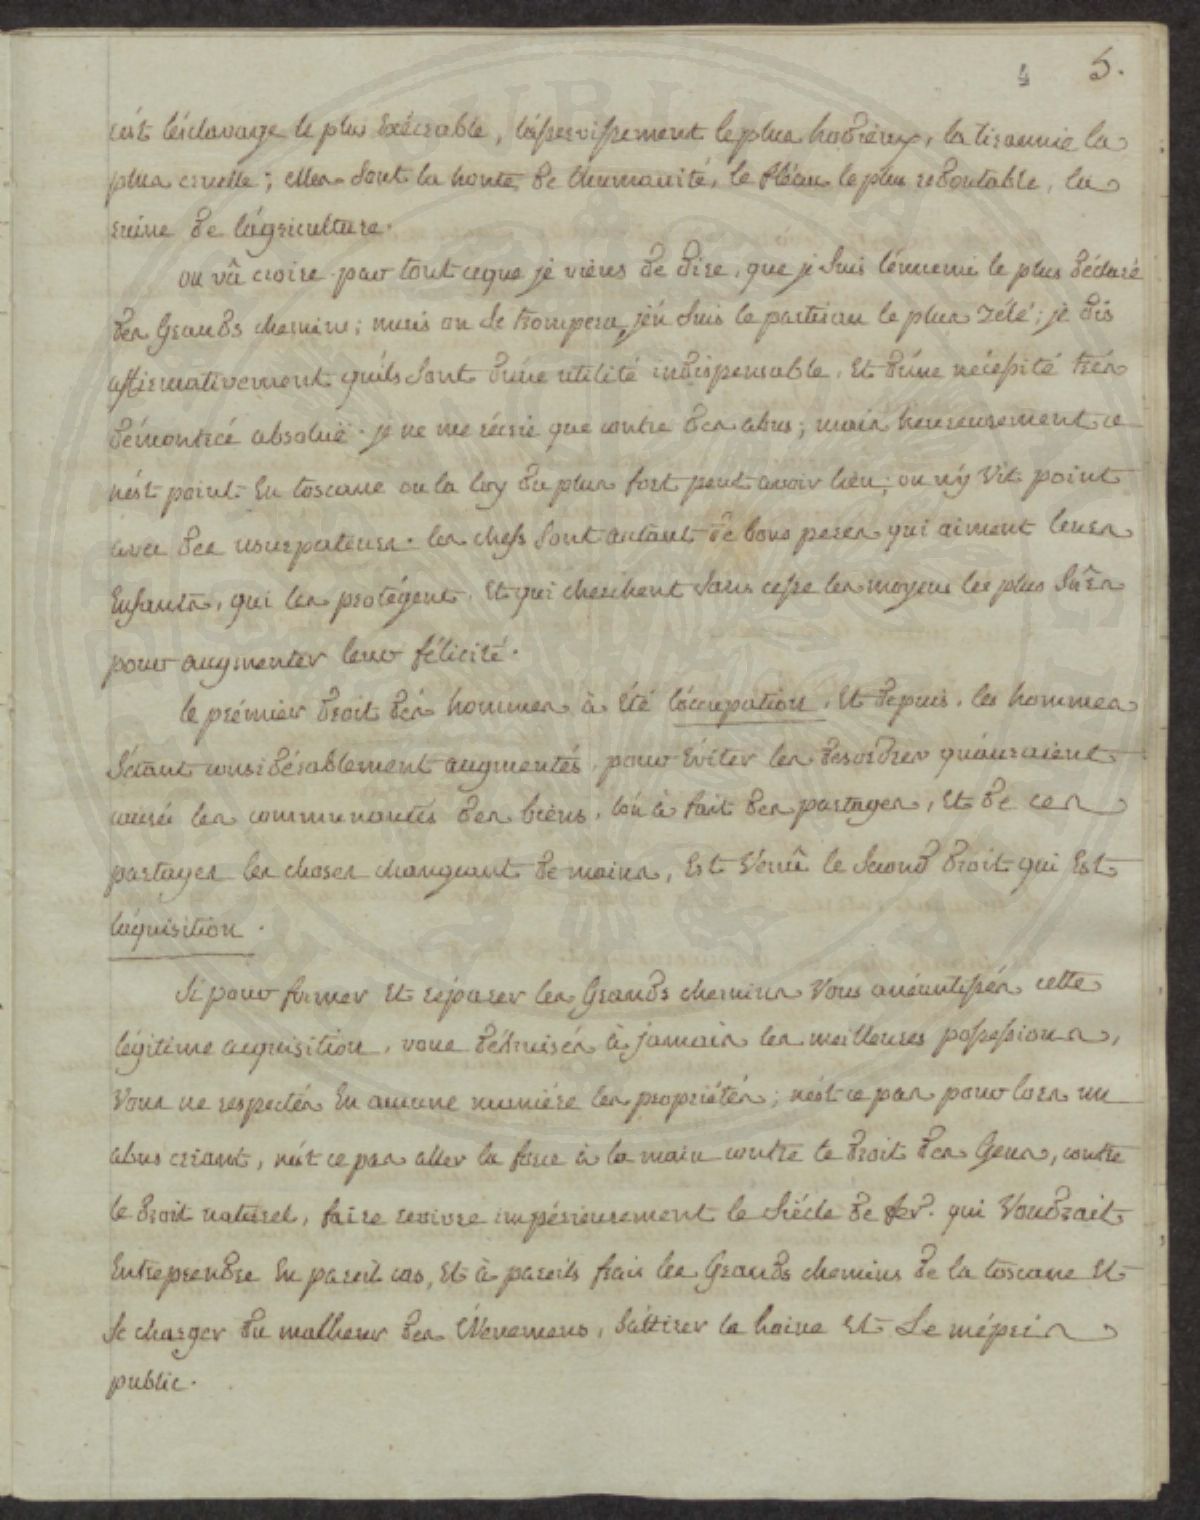 4 5.
c'ést l'ésclavage le plus éxécrable, l'ásservissement le plus hodieux, la tirannie la
plus cruelle; elles sont la honte de l'humanité, le fléau le plus redoutable, la
ruine de l'ágriculture.
on vâ croire par tout ceque je viéns de dire, que je suis l'énnemi le plus déclaré
des Grands chemins; mais on se trompera, j'én suis le partisan le plus zélé; je dis
affirmativement qu'ils sont d'úne utilité indispensable, Et d'úne nécéssité trés
démontrée absoluë. je ne me récrie que contre des abus; mais heureusement ce
n'ést point En toscane ou la loy du plus fort peut avoir lieu; on n'ý Vit point
avec des usurpateurs. les chefs sont autant de bons peres qui aiment leurs
Enfants, qui les protégent, Et qui cherchent sans cesse les moyens les plus Sûrs
pour augmenter leur félicité.
le prémier droit dés hommes à Eté l'óccupation, Et depuis, les hommes
s'étant considérablement augmentés, pour Eviter les desordres qu'áuraient
causé les communautés des biéns, l'ón à fait des partages, Et de ces
partages les choses changeant de mains, Est Vénû le Second droit qui Est
l'áquisition.
Si pour former Et réparer les Grands chemins Vous anéantissés cette
légitime acquisition, vous détruisés à jamais les meilleures possessions,
Vous ne respectés En aucune maniére les propriétés; n'ést ce pas pour lors un
abus criant, n'ést ce pas aller la force à la main contre le droit des Gens, contre
le droit naturel, faire revivre impérieusement le Siécle de fer. qui Voudrait
Entreprendre En pareil cas, Et à pareils frais les Grands chemins de la toscane Et
Se charger du malheur des Evénemens, S'áttirer la haine Et Le mépris
public.